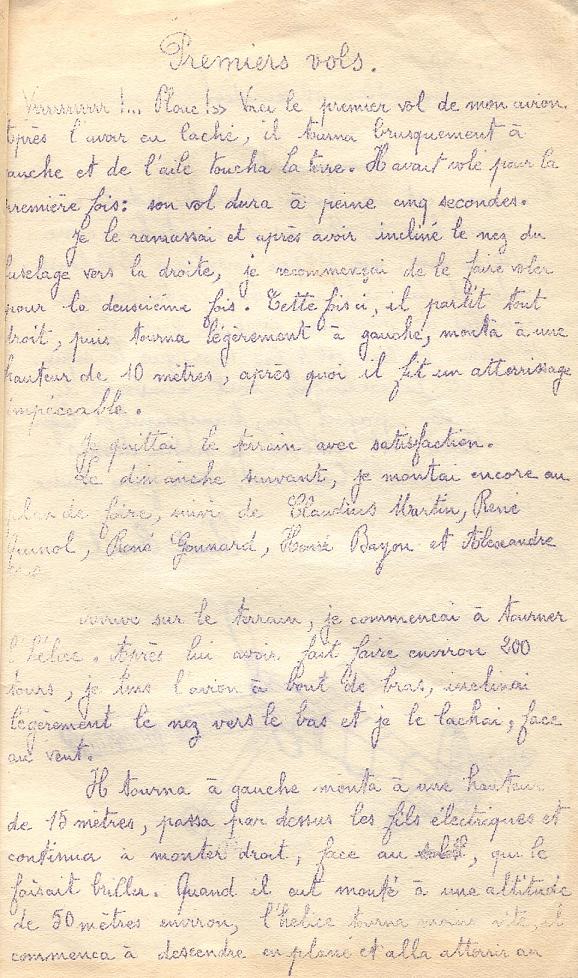 Premiers vols.
Vrrrrrrrrr !... Plouc !>> Voici le premier vol de mon avion.
après l'avoir eu laché, il tourna brusquement à
auche et de l'aile toucha la terre. Il avait volé pour la
remière fois: son vol dura à peine cinq secondes.
Je le ramassai et après avoir incliné le nez du
fuselage vers la droite, je recommençai de le faire voler
pour la deuxième fois. Cette fois ci, il partit tout
droit, puis tourna légèrement à gauche, monta à une
hauteur de 10 mètres, après quoi il fit un atterrissage
impéccable.
Je quittai le terrain avec satisfaction.
Le dimanche suivant, je montai encore au
de foire, suivi de Claudius Martin, René
René Gounard, Henri Bayou et Alexandre
arrivé sur le terrain, je commencai à tourner
l'hélice. Après lui avoir fait faire environ 200
tours, je tins l'avion à bout de bras, inclinai
légèrement le nez vers le bas et je le lachai, face
au vent.
Il tourna à gauche monta à une hauteur
de 15 mètres, passa par dessus les fils électriques et
continua à monter droit, face au , qui le
faisait briller. Quand il eut monté à une altitude
de 50 mètres environ, l'hélice tourna moins vite, il
commenca à descendre en plané et alla atterrir au